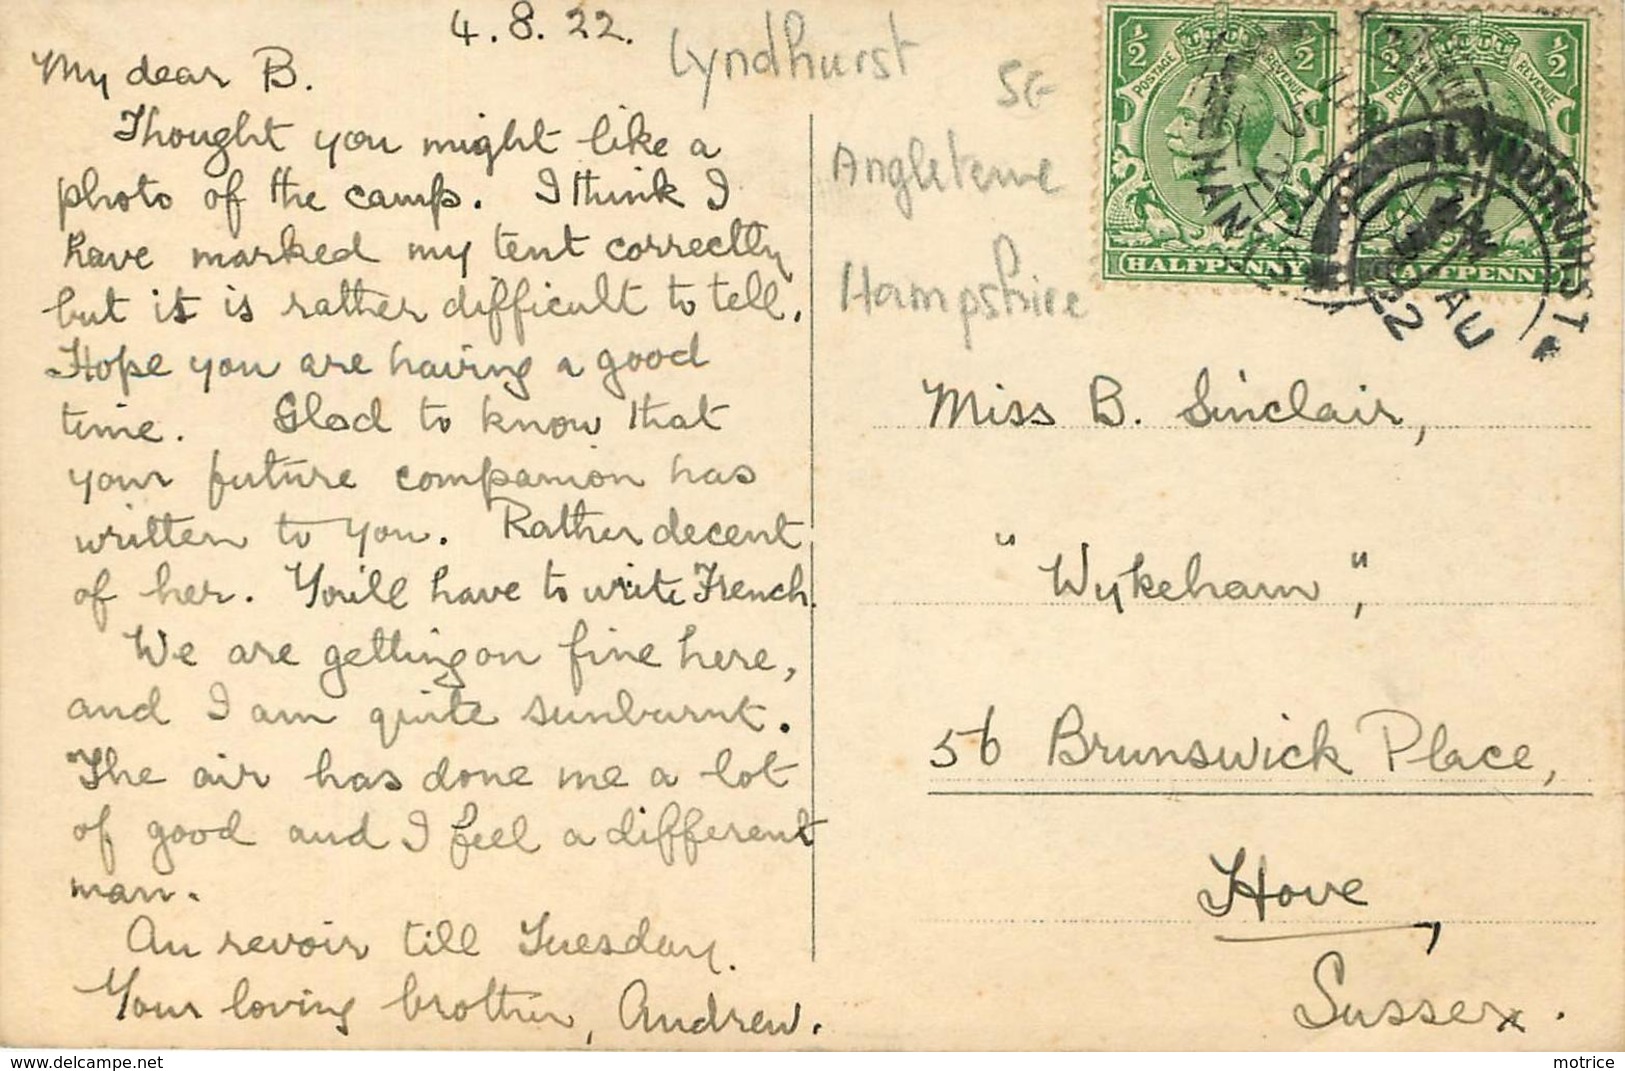 4.8.22.
My dear B.
Thought you might like a
photo of the camp. I think I
have marked my tent correctly
but it is rather difficult to tell.
Hope you are having a good
time. Glad to know that
your future companion has
written to you. Rather decent
of her. You'll have to write French.
We are getting on fine here,
and I am quite sunburnt.
The air has done me a lot
of good and I feel a different
man.
Au revoir till Tuesday.
Your loving brother, Andrew.
Lyndhurst
5€
Angleterre
Hampshire
½ ½
POSTAGE REVENUE
HALFPENNY
½ ½
POSTAGE REVENUE
HALFPENNY
LYNDHURST
HANTS
AU
22
Miss B. Sinclair,
"Wykeham",
56 Brunswick Place,
Hove,
Sussex.
www.delcampe.net
motrice